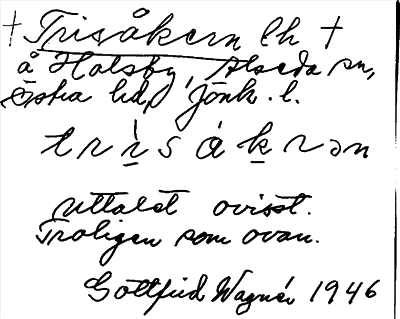 † Trisåkern lh †
å Holsby, Alseda sn,
Östra hd, Jönk. l.
trìsákrən
Uttalet ovisst.
Troligen som ovan.
Gottfrid Wagnér 1946